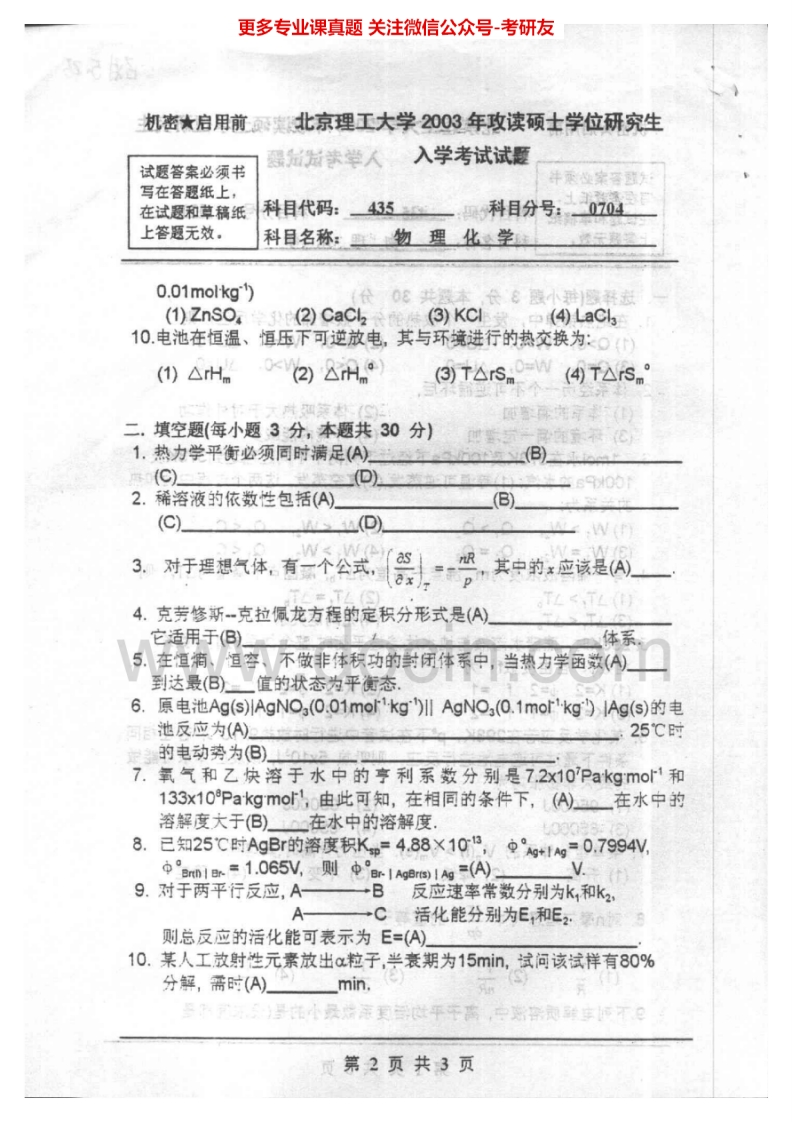 更多专业课真题 关注微信公众号-考研友
机密★启用前 北京理工大学 2003 年攻读硕士学位研究生
入学考试试题
试题答案必须书
写在答题纸上，
在试题和草稿纸
上答题无效。
科目代码： 435 科目分号： 0704
科目名称： 物 理 化 学
0.01mol·kg⁻¹)
(1) ZnSO₄ (2) CaCl₂ (3) KCl (4) LaCl₃
10.电池在恒温、恒压下可逆放电, 其与环境进行的热交换为:
(1) △rHₘ (2) △rHₘ° (3) T△rSₘ (4) T△rSₘ°
二. 填空题(每小题 3 分, 本题共 30 分)
1. 热力学平衡必须同时满足(A)________(B)________
(C)________(D)________
2. 稀溶液的依数性包括(A)________(B)________
(C)________(D)________
3. 对于理想气体, 有一个公式, (∂S/∂x)_T = -nR/p, 其中的x应该是(A)____.
4. 克劳修斯--克拉佩龙方程的定积分形式是(A)________
它适用于(B)________体系.
5. 在恒熵、恒容、不做非体积功的封闭体系中, 当热力学函数(A)____
到达最(B)___值的状态为平衡态.
6. 原电池Ag(s)|AgNO₃(0.01mol⁻¹kg⁻¹)|| AgNO₃(0.1mol⁻¹kg⁻¹) |Ag(s)的电
池反应为(A)________. 25℃时
的电动势为(B)________.
7. 氧气和乙炔溶于水中的亨利系数分别是7.2x10⁷Pa·kg·mol⁻¹ 和
133x10⁸Pa·kg·mol⁻¹, 由此可知, 在相同的条件下, (A)____在水中的
溶解度大于(B)____在水中的溶解度.
8. 已知25℃时AgBr的溶度积Ksp= 4.88×10⁻¹³, φ°Ag+ | Ag = 0.7994V,
φ°Br(l) | Br- = 1.065V, 则 φ°Br- | AgBr(s) | Ag =(A) ________V.
9. 对于两平行反应, A————→B 反应速率常数分别为k₁和k₂,
A————→C 活化能分别为E₁和E₂.
则总反应的活化能可表示为 E=(A)________.
10. 某人工放射性元素放出α粒子,半衰期为15min, 试问该试样有80%
分解, 需时(A)________min.
www.docin.com
第 2 页 共 3 页